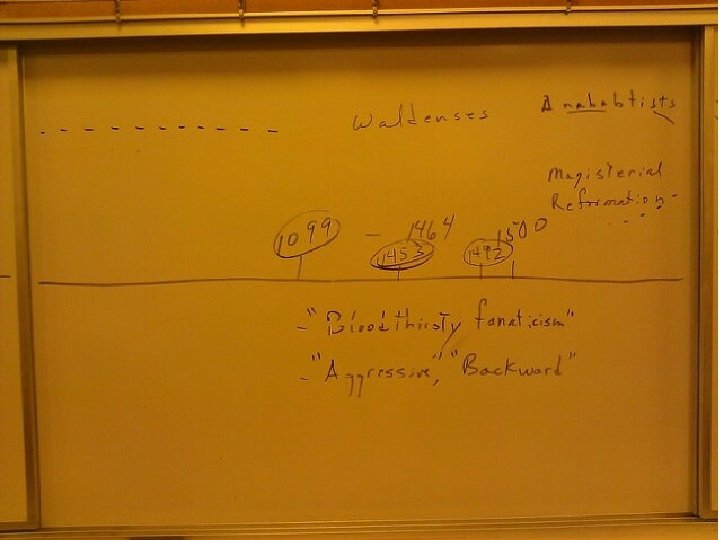 Waldenses
Anababtists
Magisterial
Reformation
1099 – 1464
1453
1492
1500
- "Bloodthirsty fanaticism"
- "Aggressive," "Backward"